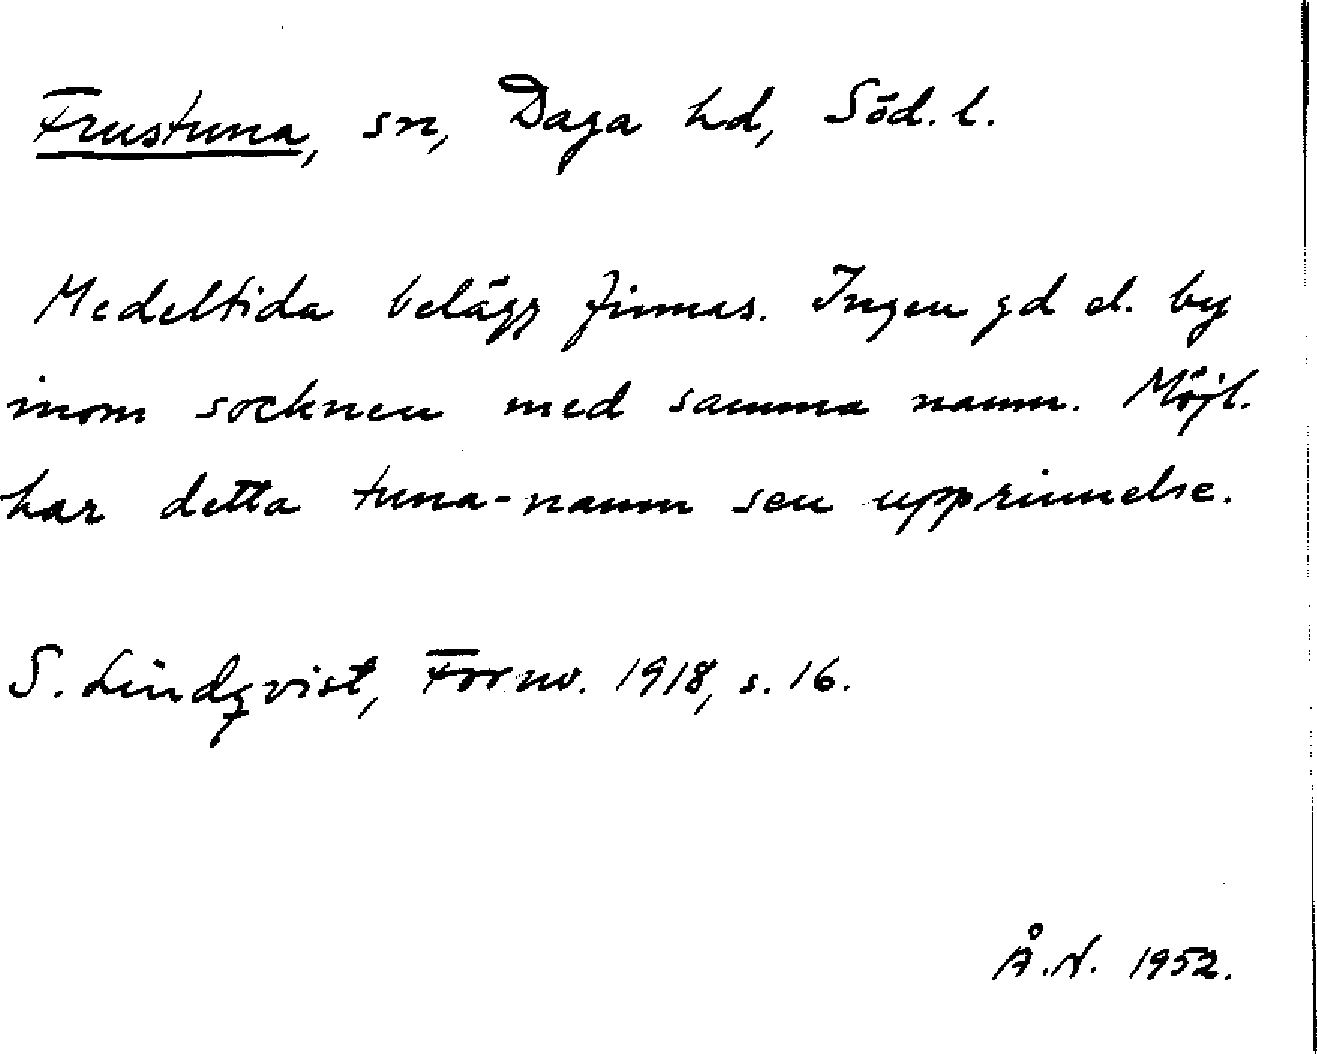 Frustuna, sn, Daga hd, Söd. l.
Medeltida belägg finnas. Ingen gd el. by
inom socknen med samma namn. Möjl.
har detta tuna-namn sen upprinnelse.
S. Lindqvist, Fornv. 1918, s. 16.
Å.N. 1952.